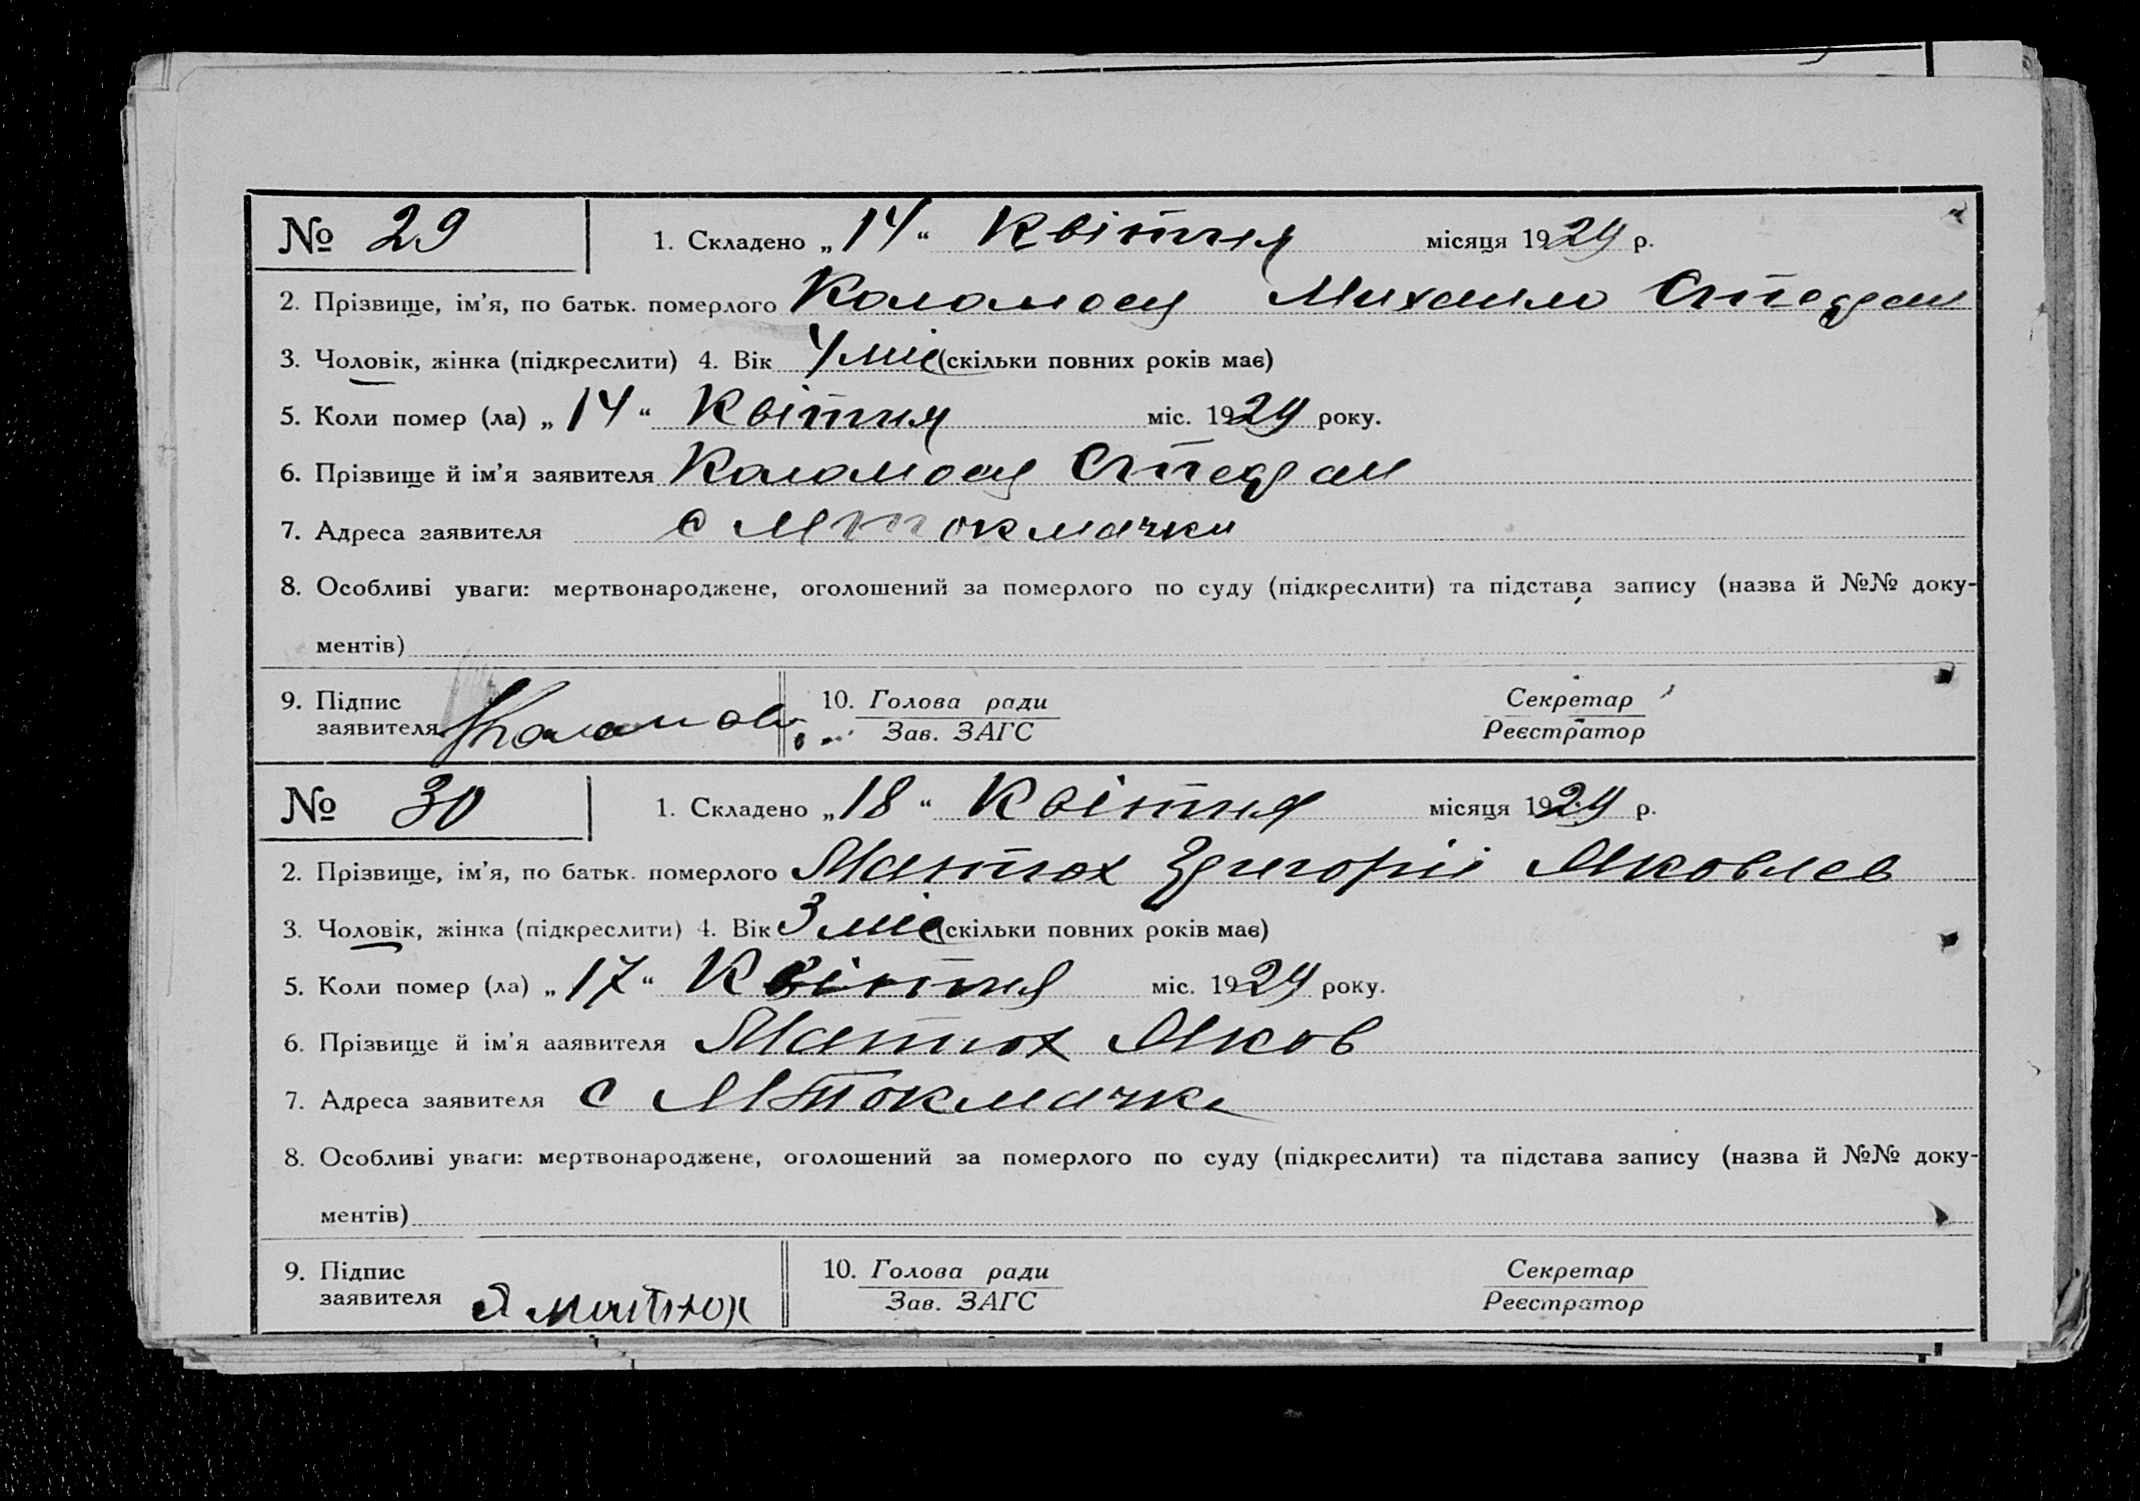 № 29 1. Складено „14“ Квітня місяця 1929 р.
2. Прізвище, ім'я, по батьк. померлого Коломоец Михаило Стефан
3. Чоловік, жінка (підкреслити) 4. Вік 4 міс (скільки повних років має)
5. Коли помер (ла) „14“ Квітня міс. 1929 року.
6. Прізвище й ім'я заявителя Коломоец Стефан
7. Адреса заявителя с М Токмачки
8. Особливі уваги: мертвонароджене, оголошений за померлого по суду (підкреслити) та підстава запису (назва й №№ доку-
ментів)
9. Підпис 10. Голова ради Секретар
заявителя Зав. ЗАГС Реєстратор
№ 30 1. Складено „18“ Квітня місяця 1929 р.
2. Прізвище, ім'я, по батьк. померлого Матюх Григорій Яковлев
3. Чоловік, жінка (підкреслити) 4. Вік 3 міс (скільки повних років має)
5. Коли помер (ла) „17“ Квітня міс. 1929 року.
6. Прізвище й ім'яааявителя Матюх Яков
7. Адреса заявителя с М Токмачка
8. Особливі уваги: мертвонароджене, оголошений за померлого по суду (підкреслити) та підстава запису (назва й №№ доку-
ментів)
9. Підпис 10. Голова ради Секретар
заявителя Я Матюх Зав. ЗАГС Реєстратор